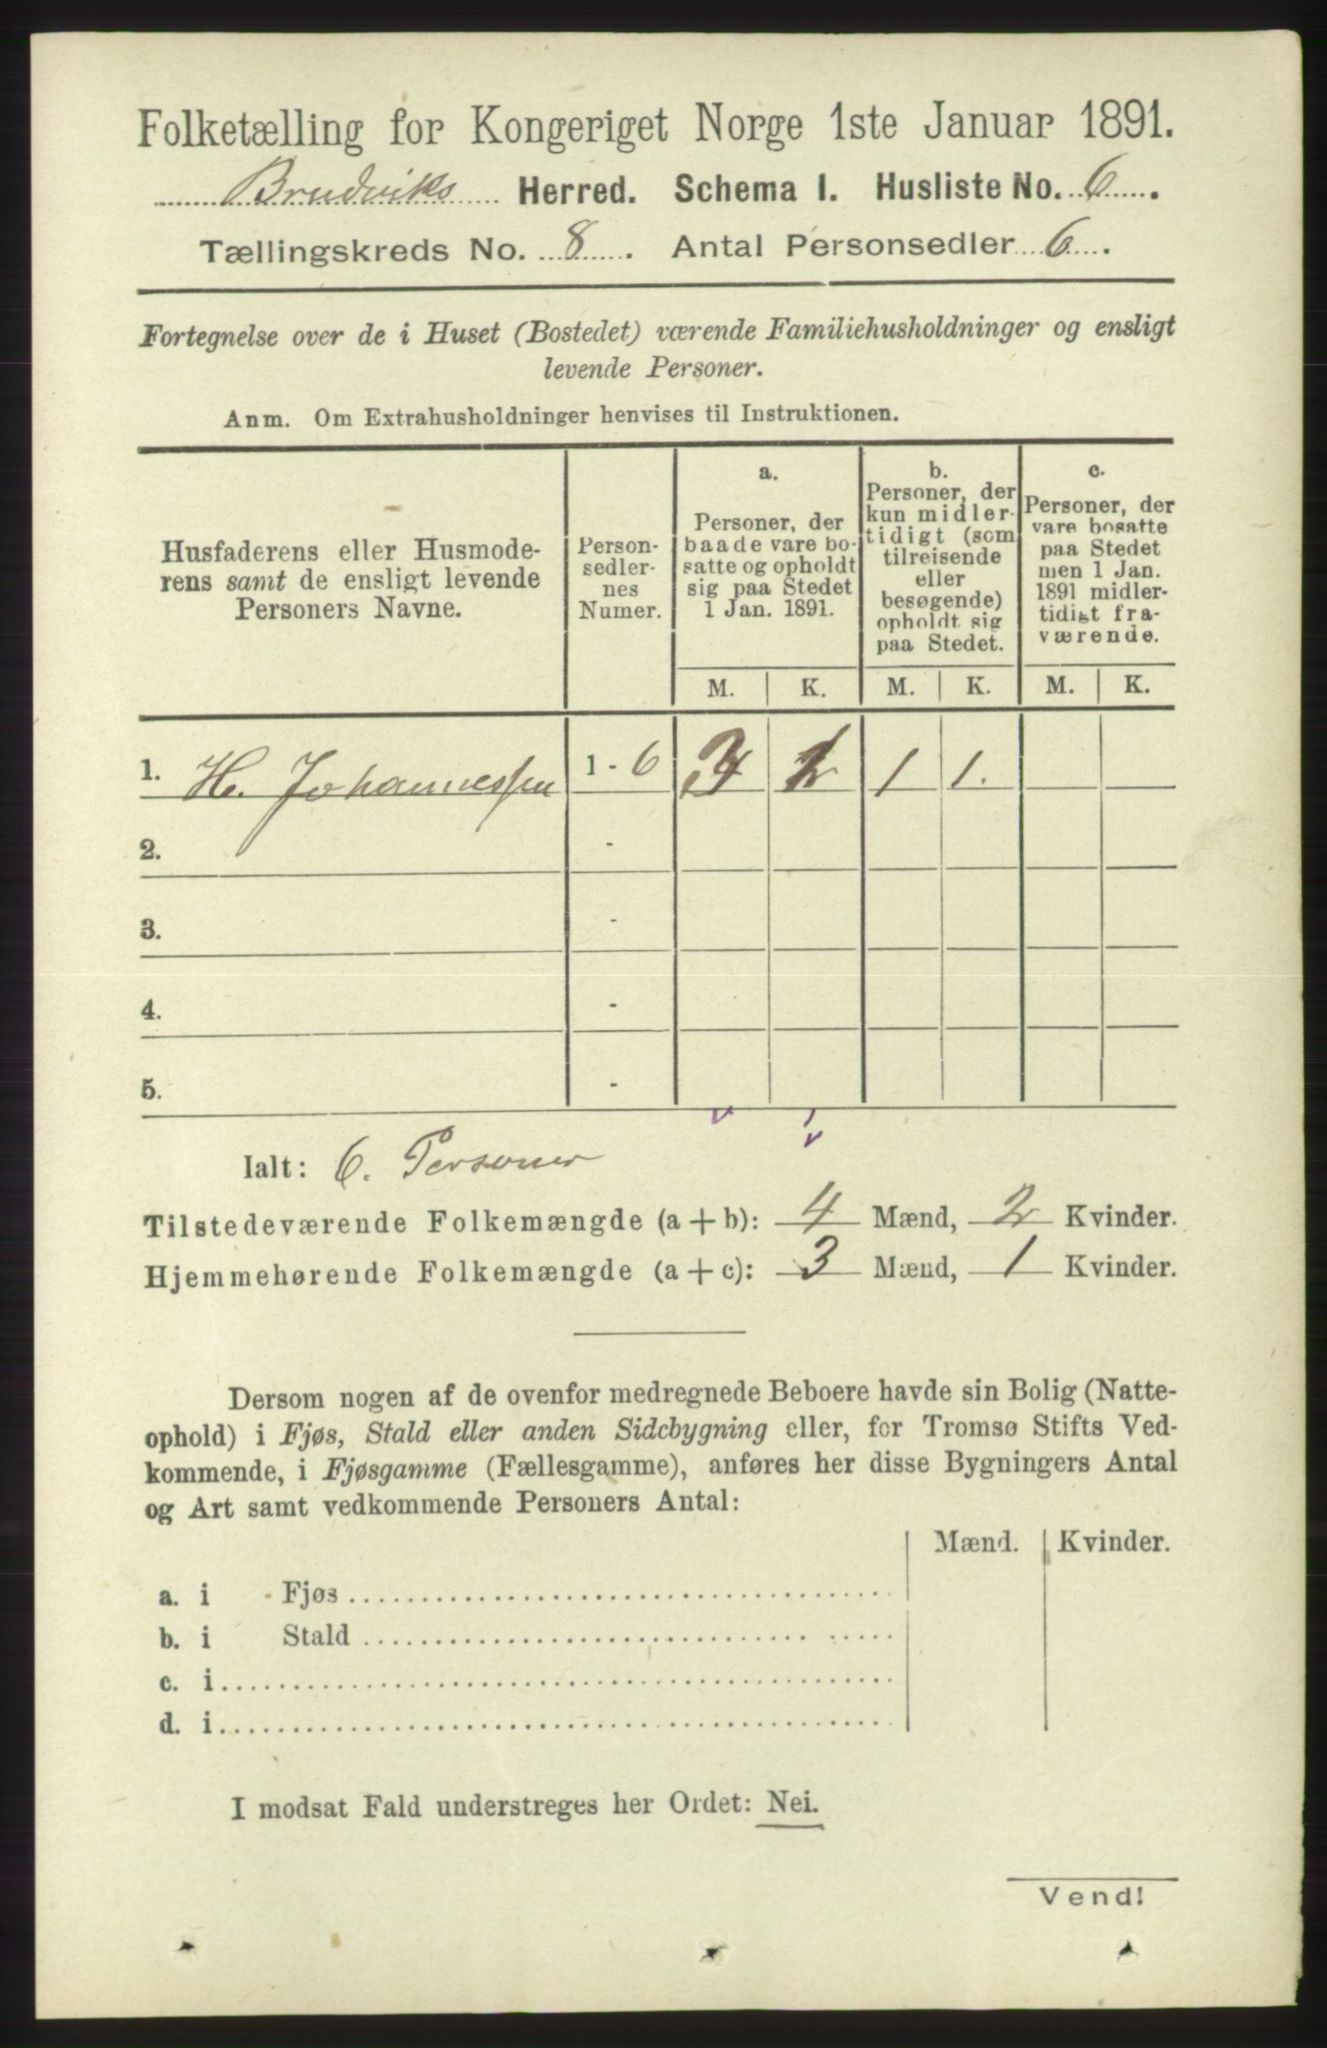 Folketælling for Kongeriget Norge 1ste Januar 1891.
Brudviks Herred. Schema I. Husliste No. 6.
Tællingskreds No. 8. Antal Personsedler 6.
Fortegnelse over de i Huset (Bostedet) værende Familiehusholdninger og ensligt
levende Personer.
Anm. Om Extrahusholdninger henvises til Instruktionen.
Husfaderens eller Husmode-
rens samt de ensligt levende
Personers Navne.
Person-
sedler-
nes
Numer.
a.
Personer, der
baade vare bo-
satte og opholdt
sig paa Stedet
1 Jan. 1891.
b.
Personer, der
kun midler-
tidigt (som
tilreisende
eller
besøgende)
opholdt sig
paa Stedet.
c.
Personer, der
vare bosatte
paa Stedet
men 1 Jan.
1891 midler-
tidigt fra-
værende.
M. K. M. K. M. K.
1. H. Johannessen 1 - 6 3 1 1 1.
2. -
3. -
4. -
5. -
Ialt: 6. Personer
Tilstedeværende Folkemængde (a+b): 4 Mænd, 2 Kvinder.
Hjemmehørende Folkemængde (a+c): 3 Mænd, 1 Kvinder.
Dersom nogen af de ovenfor medregnede Beboere havde sin Bolig (Natte-
ophold) i Fjøs, Stald eller anden Sidebygning eller, for Tromsø Stifts Ved-
kommende, i Fjøsgamme (Fællesgamme), anføres her disse Bygningers Antal
og Art samt vedkommende Personers Antal:
Mænd. Kvinder.
a. i Fjøs
b. i Stald
c. i
d. i
I modsat Fald understreges her Ordet: Nei.
Vend!